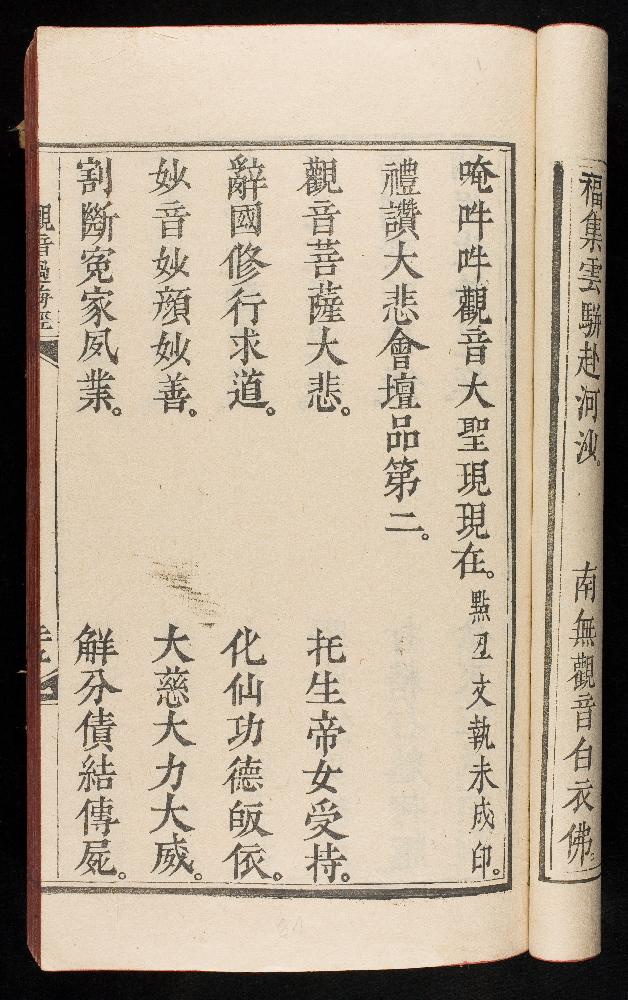 福集雲駢赴河沙。 南無觀音白衣佛。
唵吽吽觀音大聖現現在。點丑文執未成印。
禮讚大悲會壇品第二。
觀音菩薩大悲。 托生帝女受持。
辭國修行求道。 化仙功德皈依。
妙音妙顔妙善。 大慈大力大威。
割斷冤家夙業。 解分債結傳屍。
觀音過海經